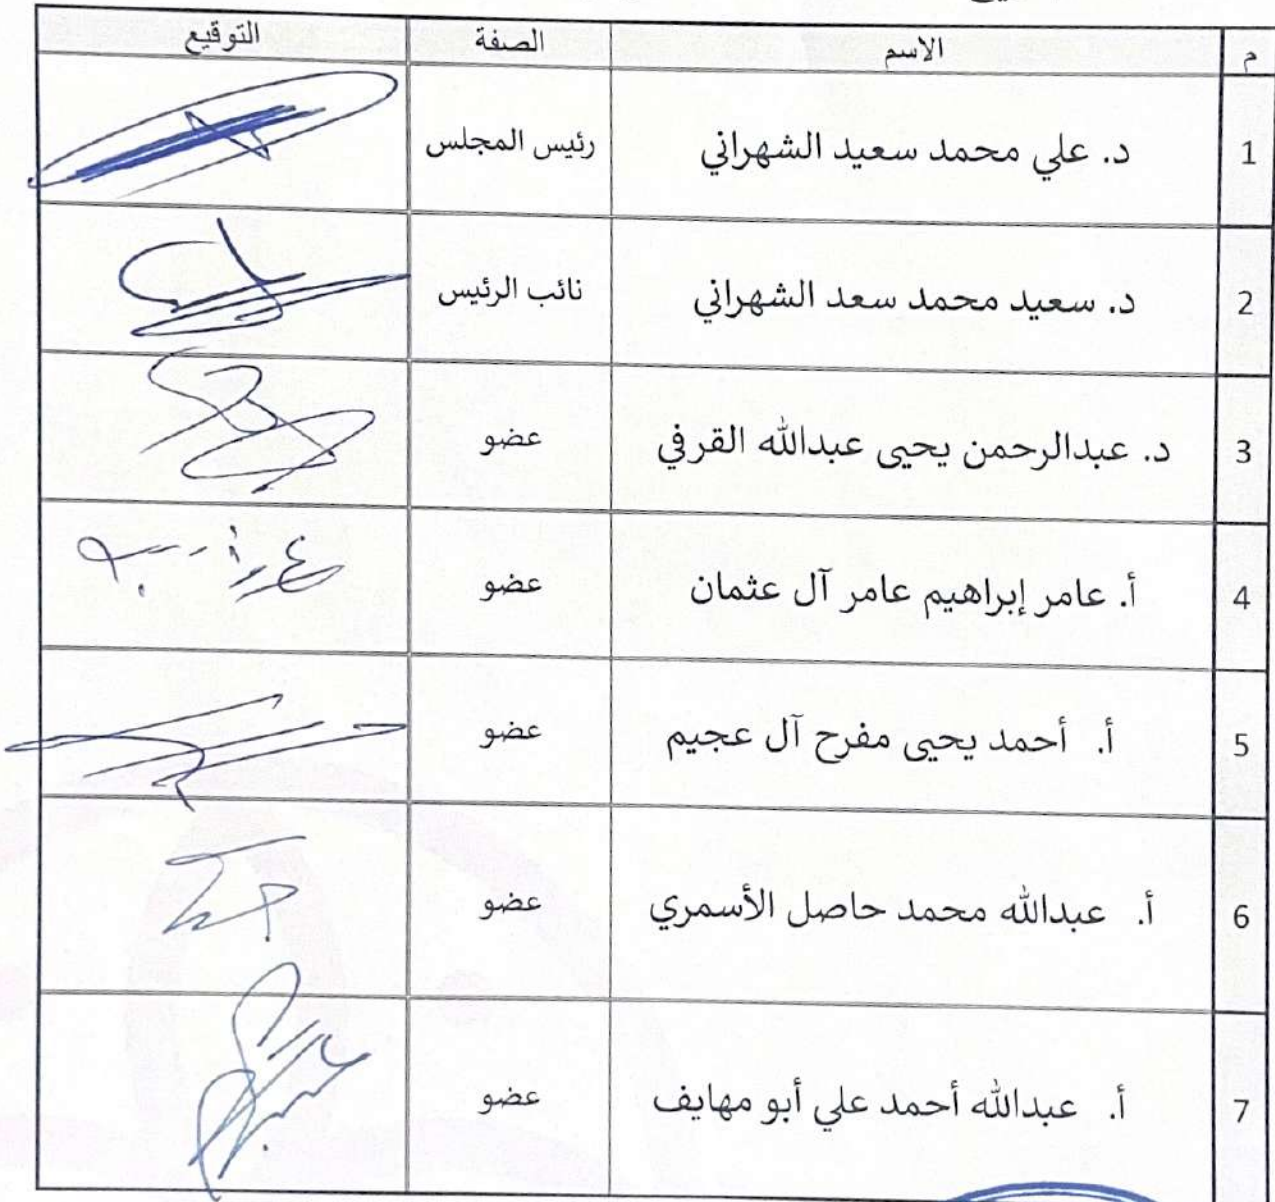 م الاسم الصفة التوقيع
1 د. علي محمد سعيد الشهراني رئيس المجلس
2 د. سعيد محمد سعد الشهراني نائب الرئيس
3 د. عبدالرحمن يحيى عبدالله القرفي عضو
4 أ. عامر إبراهيم عامر آل عثمان عضو
5 أ. أحمد يحيى مفرح آل عجيم عضو
6 أ. عبدالله محمد حاصل الأسمري عضو
7 أ. عبدالله أحمد علي أبو مهايف عضو